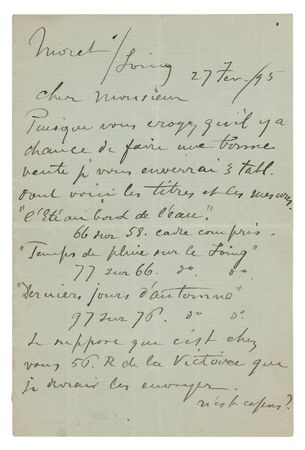 Moret s/Loing
27 Fev./95
Cher Monsieur
Puisque vous croyez qu'il y a
chance de faire une bonne
vente je vous enverrai 3 tabl.
dont voici les titres et les mesures.
"l'Eté au bord de l'eau".
66 sur 55. cadre compris.
"Temps de pluie sur le Loing"
77 sur 66. do. do.
"Derniers jours d'automne"
97 sur 76. do do.
Je suppose que c'est chez
vous 56. R de la Victoire que
je devrais les envoyer.
n'est ce pas?